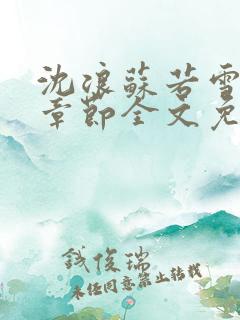 沈浪蘇若雪
章節全文免
錢俊瑞
未经同意禁止转载